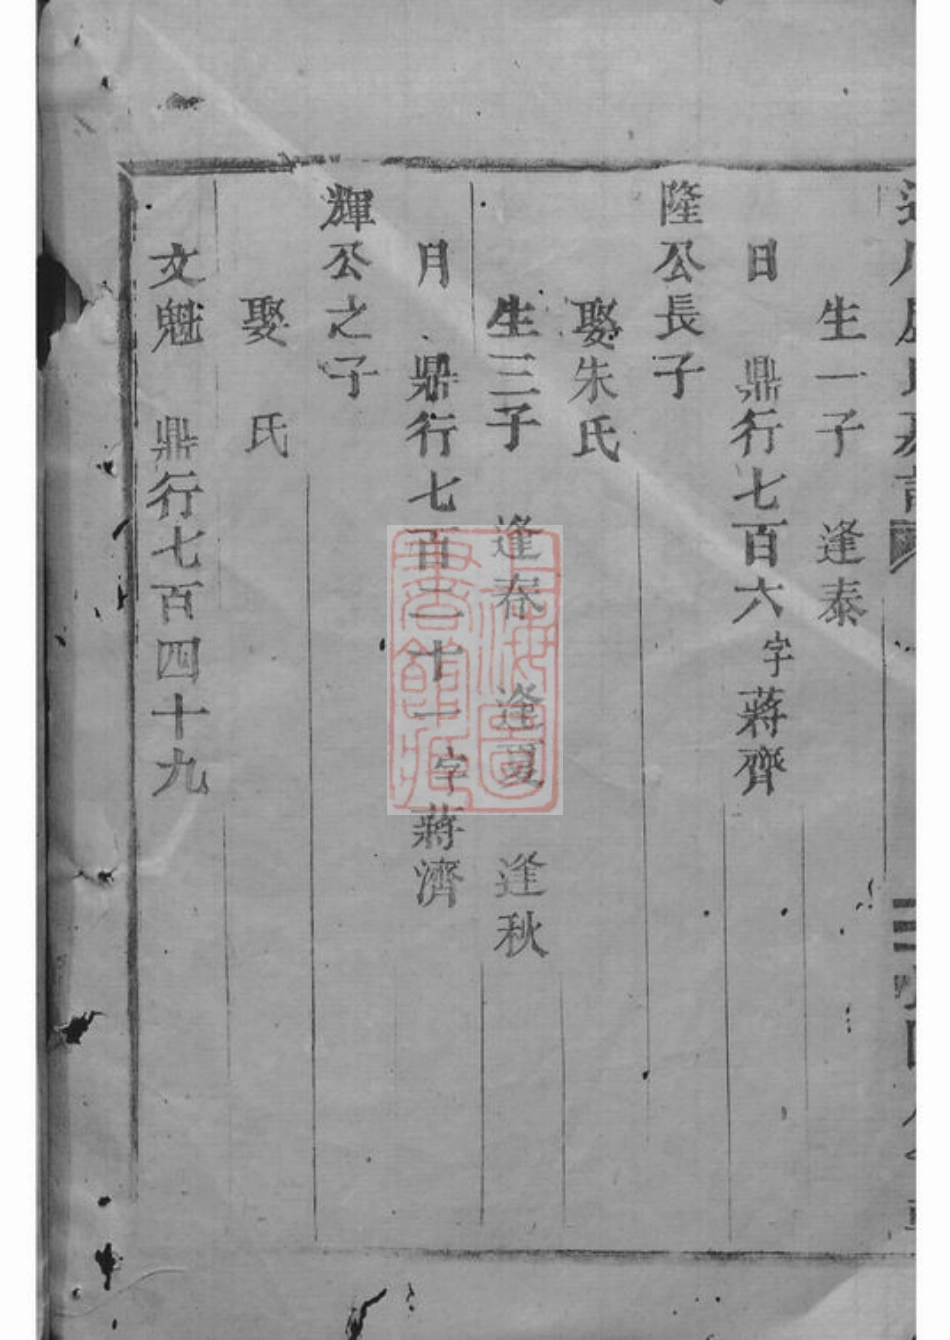 生一子　逢泰
日　鼎行七百六字蔣齊
隆公長子
娶朱氏
生三子　逢春　逢夏　逢秋
月　鼎行七百二十一字蔣濟
輝公之子
娶　氏
文魁　鼎行七百四十九